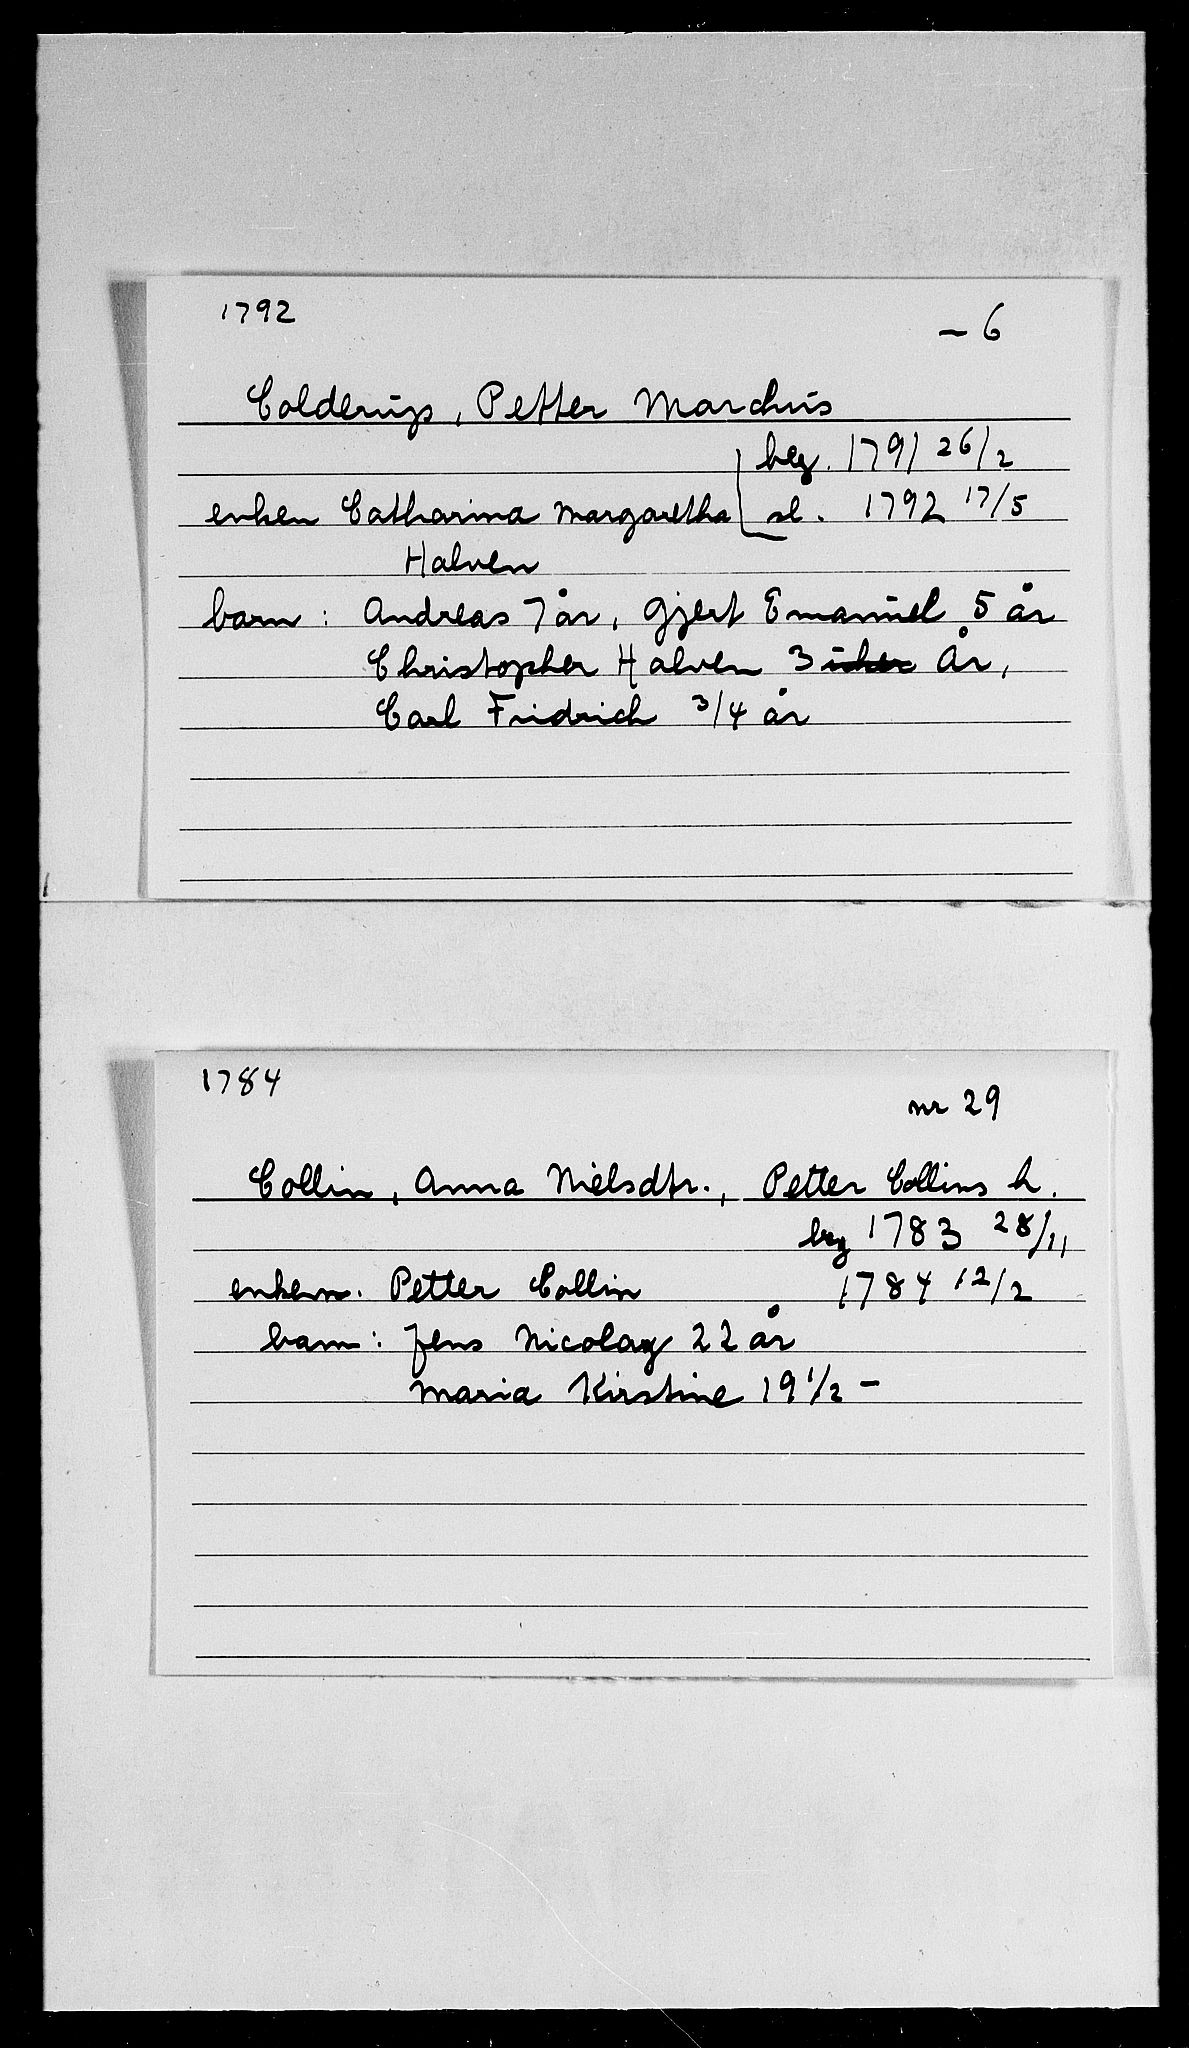 1792
– 6
Colderup, Petter Marchus
beg. 1791 26/2
enken Catharina Margaretha sl. 1792 17/5
Halven
barn: Andreas 7 år, Gjert Emanuel 5 år
Christopher Halven 3 år,
Carl Fridrich 3/4 år
1784
nr 29
Collin, Anna Nielsdtr., Petter Collins h.
beg 1783 28/11
enkem. Petter Collin 1784 12/2
barn: Jens Nicolay 22 år
Maria Kirstine 19 1/2 –